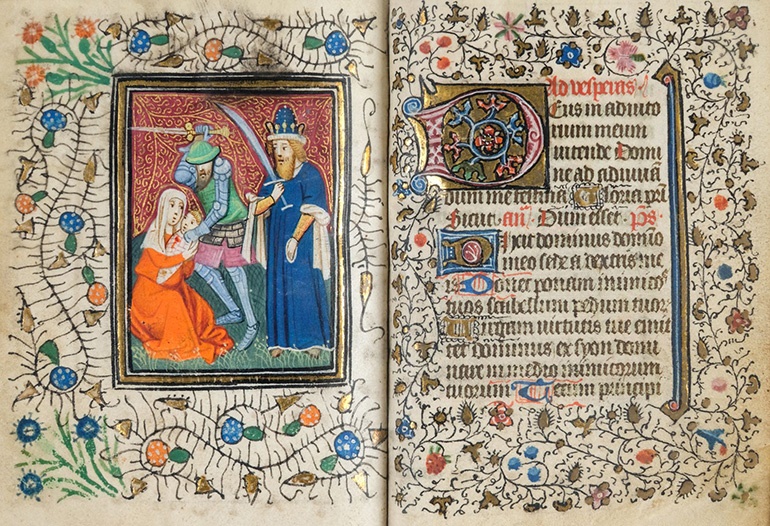 Ad vesperas
Deus in adiuto
rium meum
intende Domi
ne ad adiuuā
dum me festina Gloria pr̄i
Sicut añ Dum esset. p̄s
Dixit dominus domīo
meo sede a dextris me
is Donec ponam inimicos
tuos scabellum pedum tuor
Virgam virtutis tue emit
tet dominus ex syon domi
nare in medio inimicorum
tuorum Tecum principi